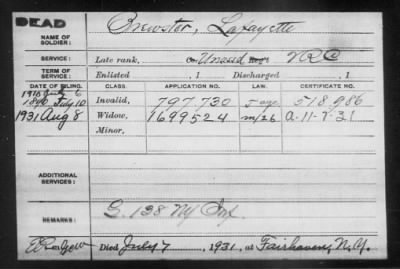 DEAD
NAME OF SOLDIER: Brewster, Lafayette
SERVICE: Late rank, Co. Unassd Reg't VRC
TERM OF SERVICE: Enlisted , 1 Discharged , 1
DATE OF FILING. CLASS. APPLICATION NO. LAW. CERTIFICATE NO.
July 6
1890 July 10 Invalid, 797.730 518.986
1931 Aug 8 Widow, 1699524 m/26 A-11-7-31
Minor,
ADDITIONAL SERVICES:
REMARKS: G. 138 NY Inf.
Died July 7, 1931, at Fairhaven, N.Y.